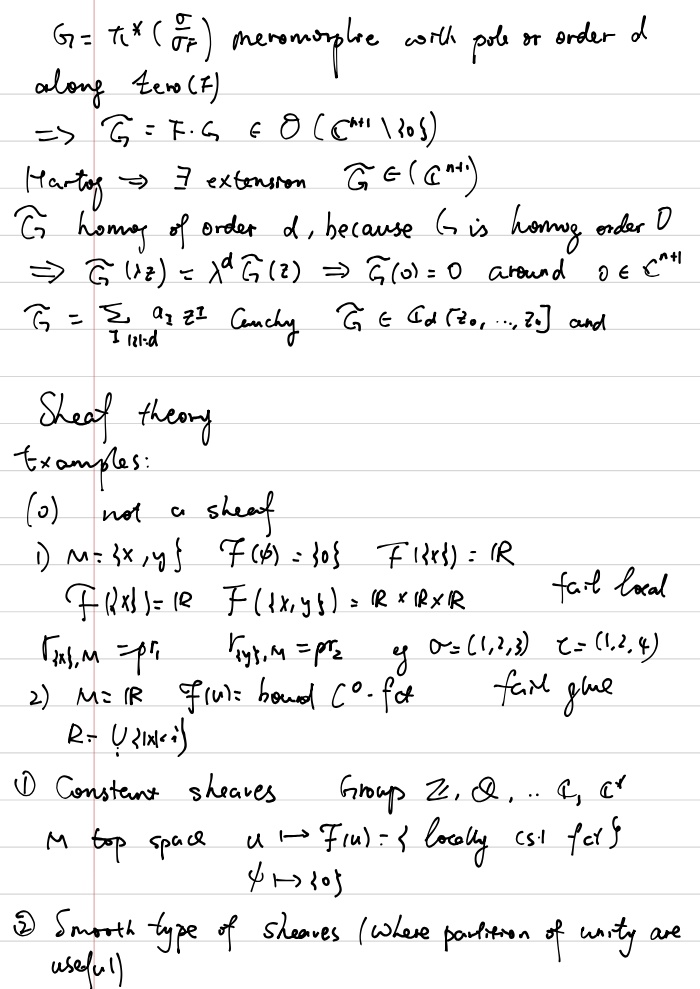 G = π*(σ/σ_F) meromorphic with pole or order d
along Zero(F)
=> G̃ = F·G ∈ O(ℂ^{n+1}\{0})
Hartog → ∃ extension G̃ ∈ (ℂ^{n+1})
G̃ homog of order d, because G is homog order 0
=> G̃(λz) = λ^d G̃(z) => G̃(0) = 0 around 0 ∈ ℂ^{n+1}
G̃ = Σ_{I |I|=d} a_I z^I Cauchy G̃ ∈ ℂ_d[z_0, ..., z_n] and
Sheaf theory
Examples:
(0) not a sheaf
1) M = {x, y} F(ϕ) = {0} F({x}) = ℝ
F({x}) = ℝ F({x,y}) = ℝ × ℝ × ℝ fail local
r_{{x},M} = pr_1 r_{{y},M} = pr_2 eg σ = (1,2,3) τ = (1,2,4)
2) M = ℝ F(u) = bound C^0-fct fail glue
R = ∪_i {|x|<i}
① Constant sheaves Group ℤ, ℚ, .. ℂ, ℂ*
M top space u ↦ F(u) = { locally cst fct }
ϕ ↦ {0}
② Smooth type of sheaves (where partition of unity are
useful)